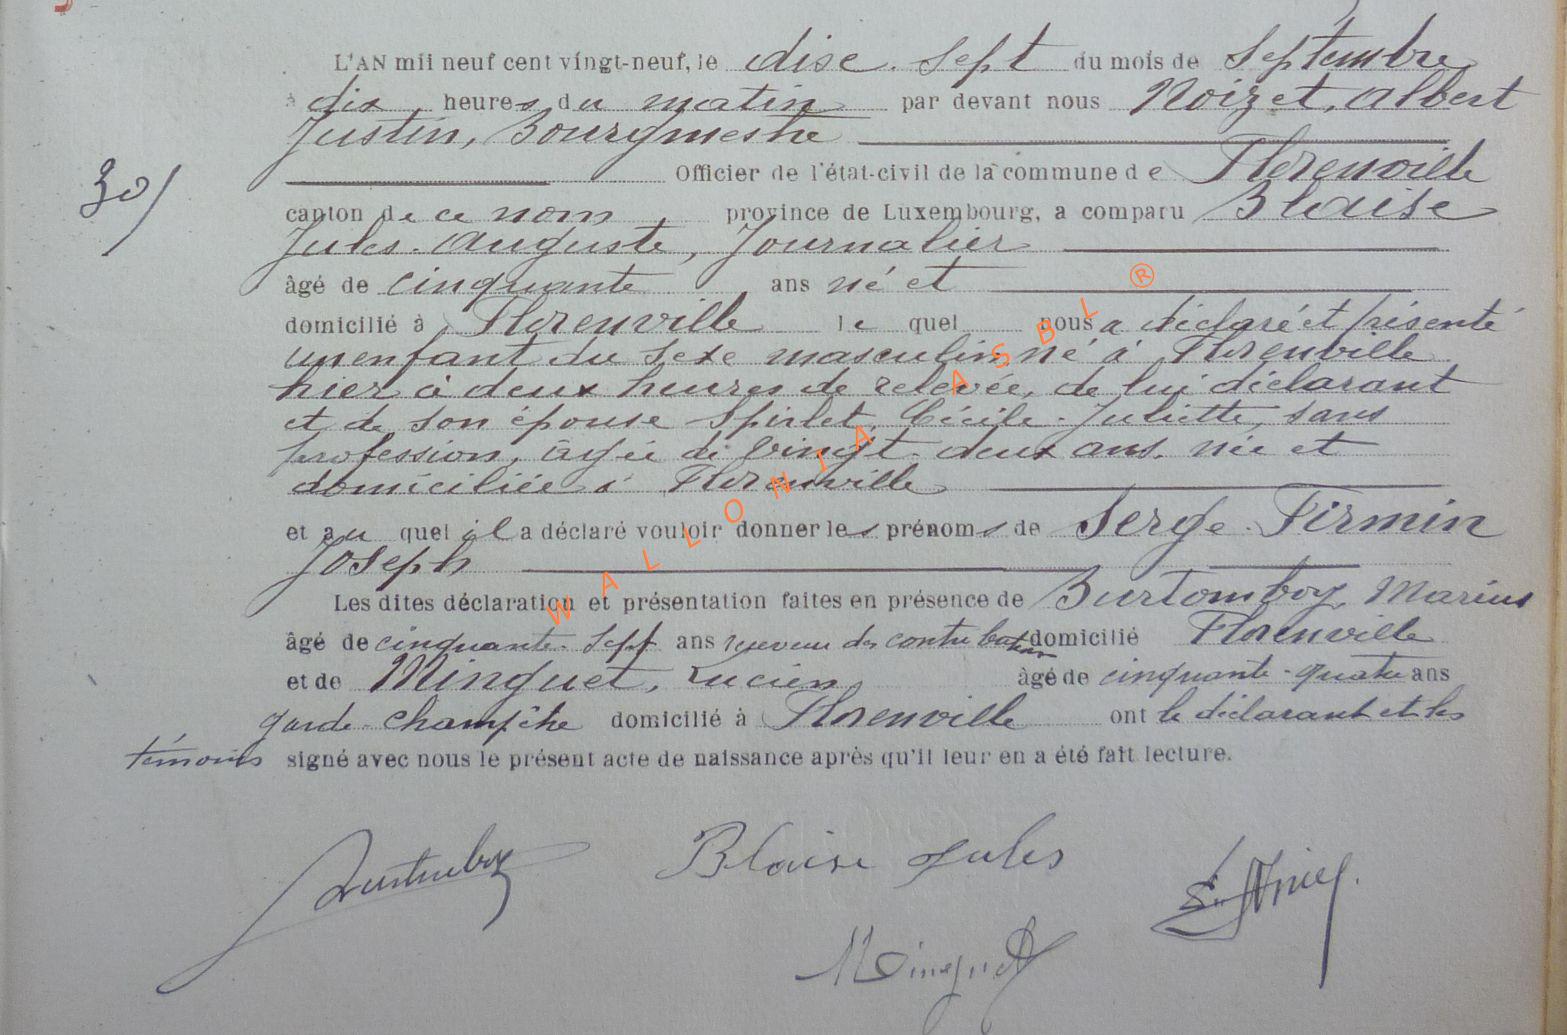 L'AN mil neuf cent vingt-neuf, le dise sept du mois de Septembre
à dix heures du matin par devant nous Noizet, Albert
Justin, Bourgmestre
Officier de l'état-civil de la commune de Florenville
30/
canton de ce nom, province de Luxembourg, a comparu Blaise
Jules-Auguste, Journalier
âgé de cinquante ans né et
domicilié à Florenville lequel nous a déclaré et présenté
un enfant du sexe masculin né à Florenville
hier à deux heures de relevée, de lui déclarant
et de son épouse Spirlet, Cécile-Juliette, sans
profession, âgée de vingt-deux ans, née et
domiciliée à Florenville
et au quel il a déclaré vouloir donner les prénoms de Serge-Firmin
Joseph
Les dites déclaration et présentation faites en présence de Burtomboy, Marius
âgé de cinquante-sept ans receveur des contributions domicilié Florenville
et de Minguet, Lucien âgé de cinquante-quatre ans
garde-champêtre domicilié à Florenville ont le déclarant et les
témoins signé avec nous le présent acte de naissance après qu'il leur en a été fait lecture.
Burtomboy Blaise Jules
Minguet
WALLONIA ASBL ®